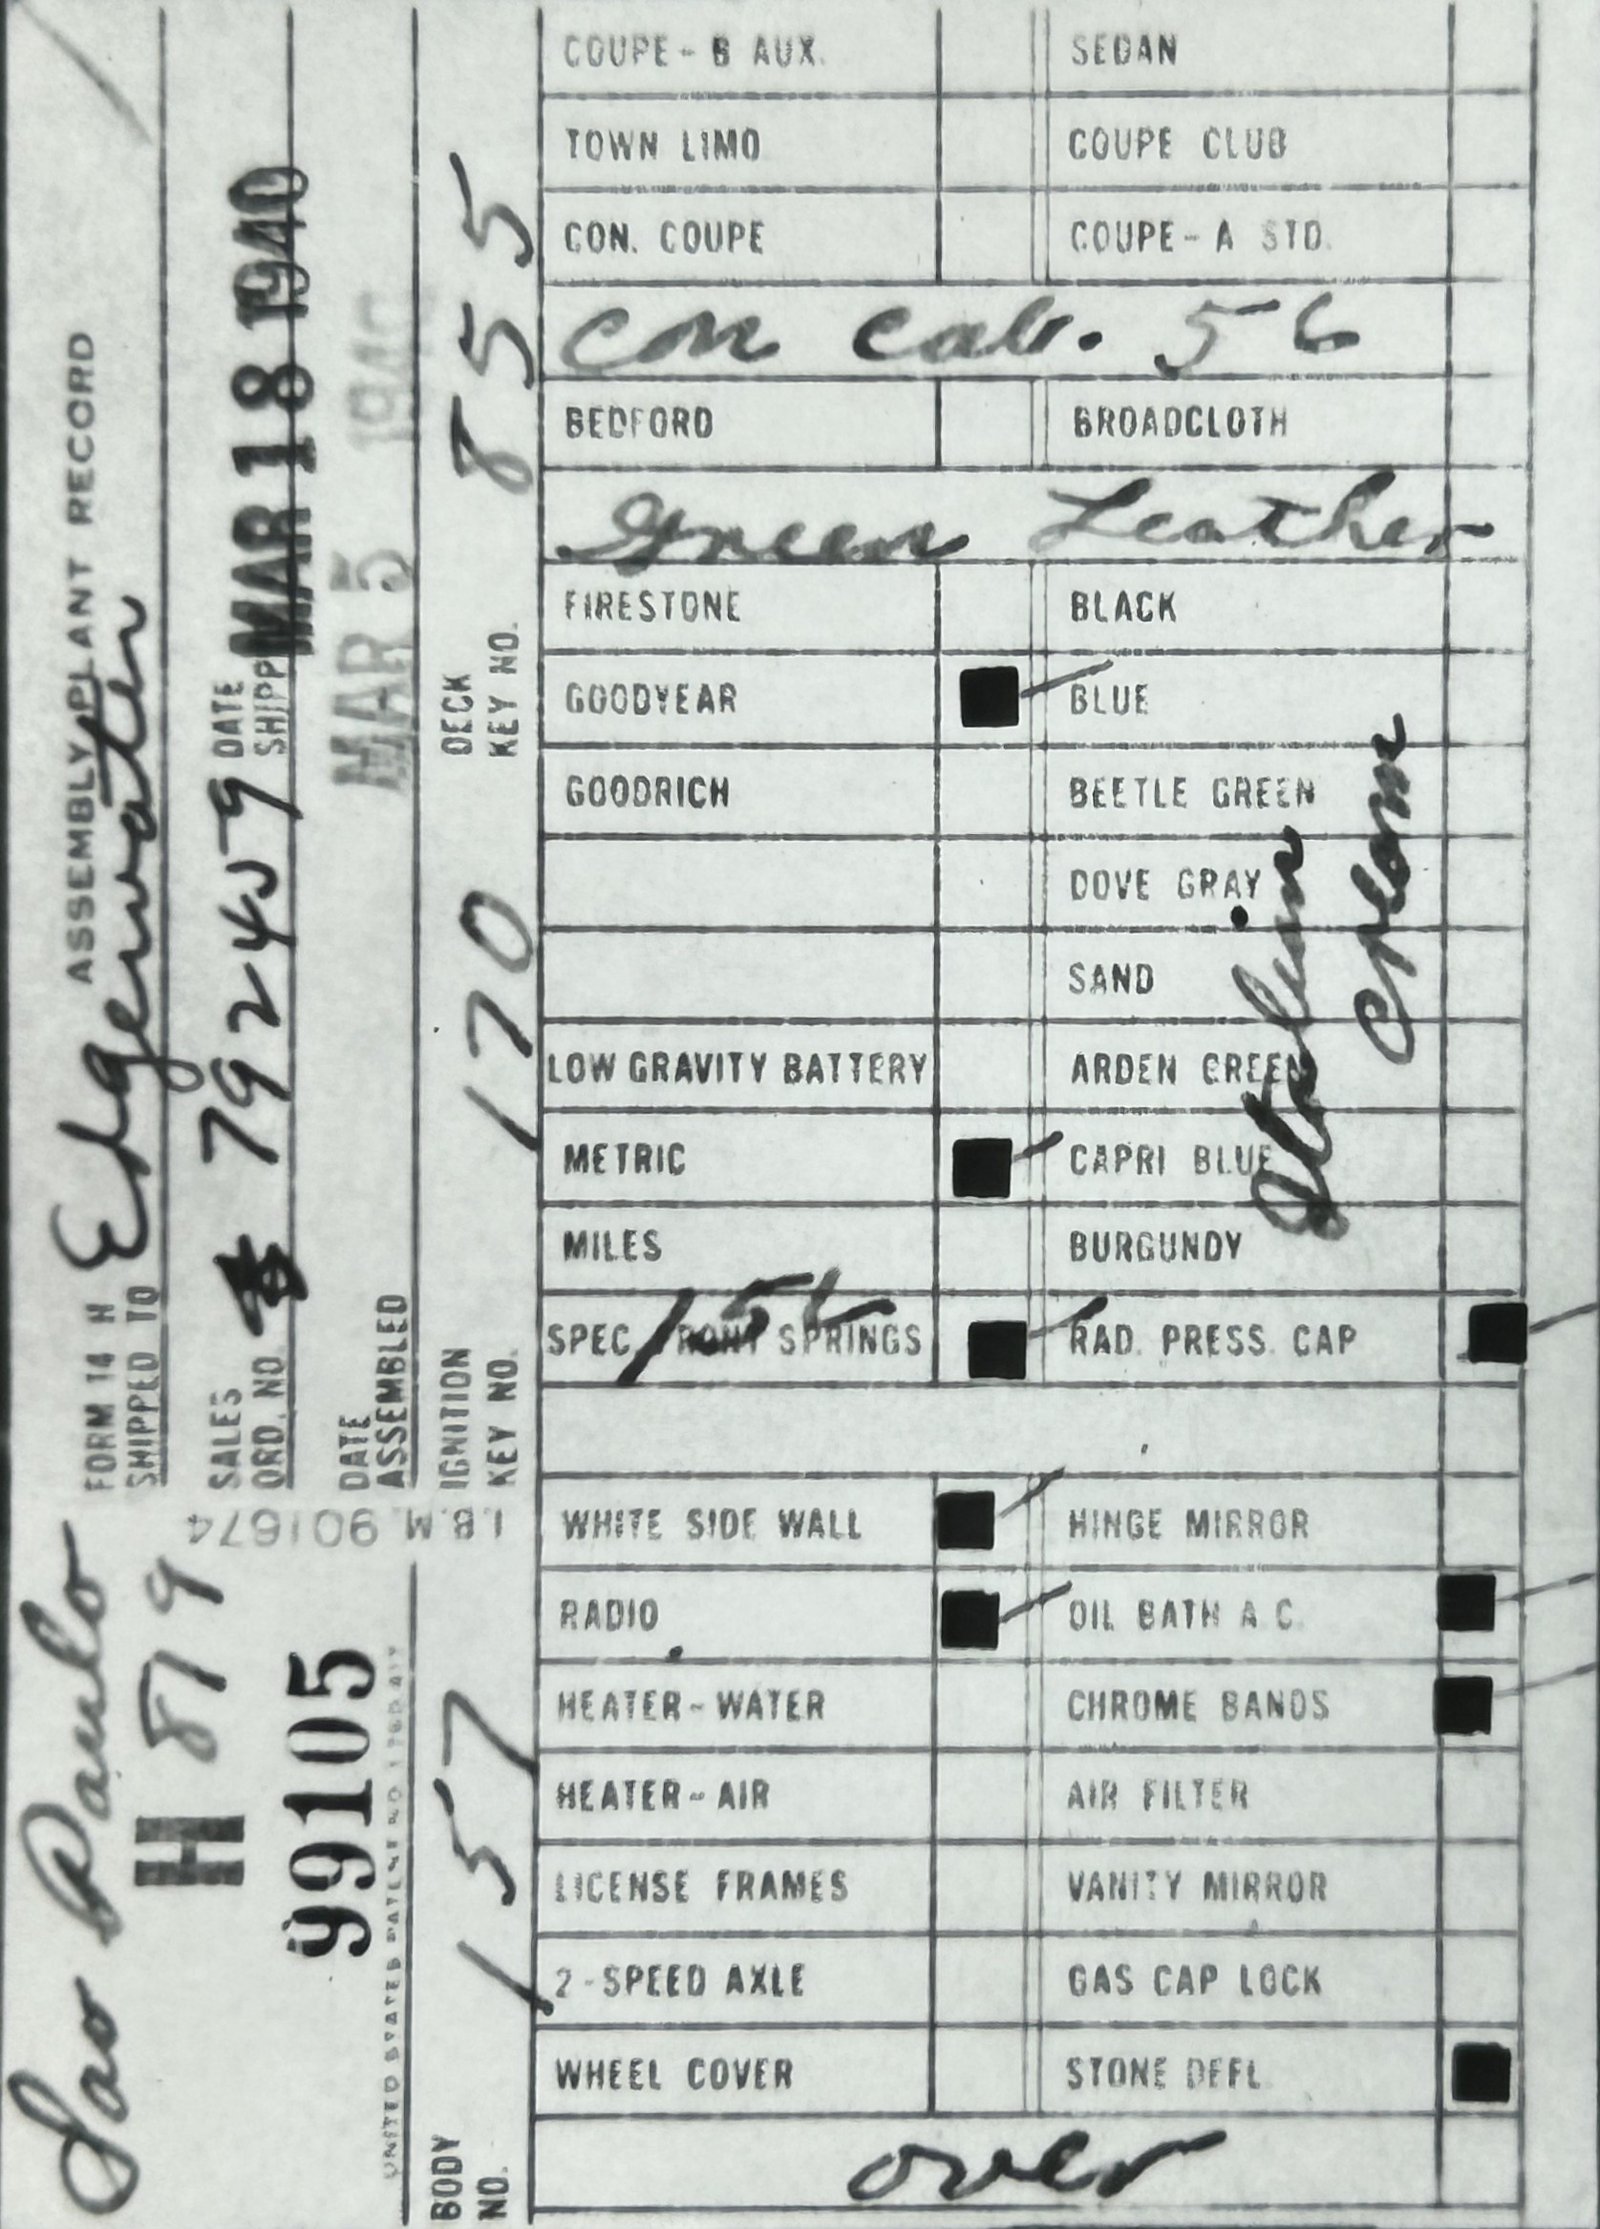 ASSEMBLY PLANT RECORD
FORM 14 H
SHIPPED TO Edgewater
Sao Paulo
SALES ORD. NO. 792459
DATE SHIPP MAR 18 1940
H 879
99105
DATE ASSEMBLED MAR 5 1940
I.B.M. 901674
IGNITION KEY NO. 170
DECK KEY NO. 855
BODY NO. 157
COUPE - B AUX. SEDAN
TOWN LIMO COUPE CLUB
CON. COUPE COUPE - A STD.
Con Cab. 56
BEDFORD BROADCLOTH
Green Leather
FIRESTONE BLACK
GOODYEAR BLUE
GOODRICH BEETLE GREEN
DOVE GRAY
SAND
LOW GRAVITY BATTERY ARDEN GREEN
METRIC CAPRI BLUE
MILES BURGUNDY
Cream
SPEC FRONT SPRINGS RAD. PRESS. CAP
WHITE SIDE WALL HINGE MIRROR
RADIO OIL BATH A.C.
HEATER - WATER CHROME BANDS
HEATER - AIR AIR FILTER
LICENSE FRAMES VANITY MIRROR
2 - SPEED AXLE GAS CAP LOCK
WHEEL COVER STONE DEFL
over